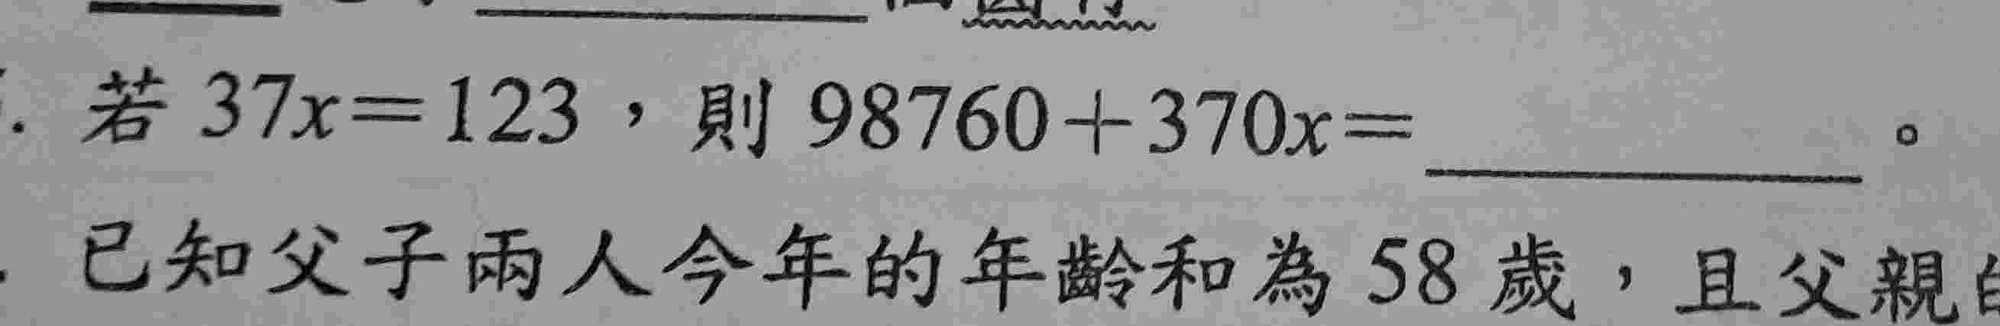 . 若 37x=123，則 98760+370x=＿＿＿＿＿。
. 已知父子兩人今年的年齡和為 58 歲，且父親